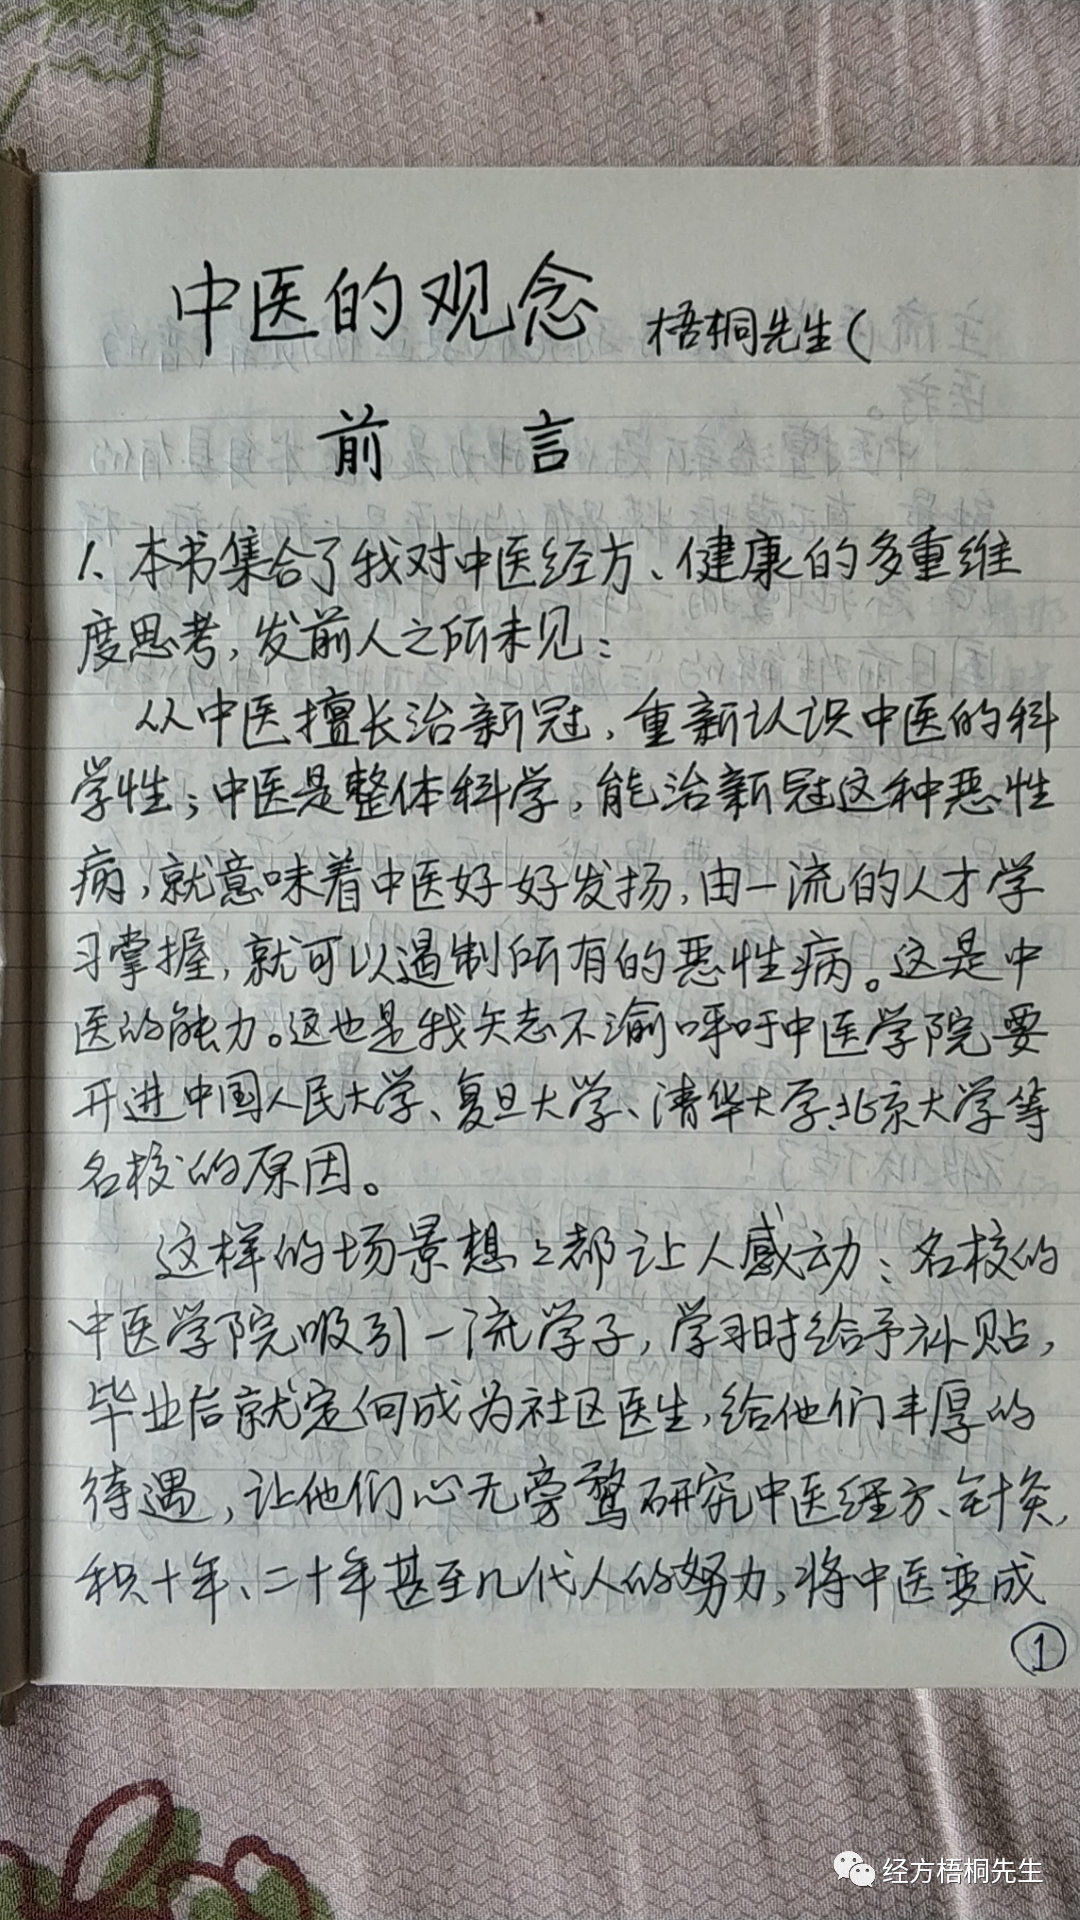 中医的观念 梧桐先生(
前 言
1、本书集合了我对中医经方、健康的多重维
度思考,发前人之所未见:
从中医擅长治新冠,重新认识中医的科
学性;中医是整体科学,能治新冠这种恶性
病,就意味着中医好好发扬,由一流的人才学
习掌握,就可以遏制所有的恶性病。这是中
医的能力。这也是我矢志不渝呼吁中医学院要
开进中国人民大学、复旦大学、清华大学、北京大学等
名校的原因。
这样的场景想々都让人感动:名校的
中医学院吸引一流学子,学习时给予补贴,
毕业后就定向成为社区医生,给他们丰厚的
待遇,让他们心无旁鹜研究中医经方、针灸,
积十年、二十年甚至几代人的努力,将中医变成
①
经方梧桐先生